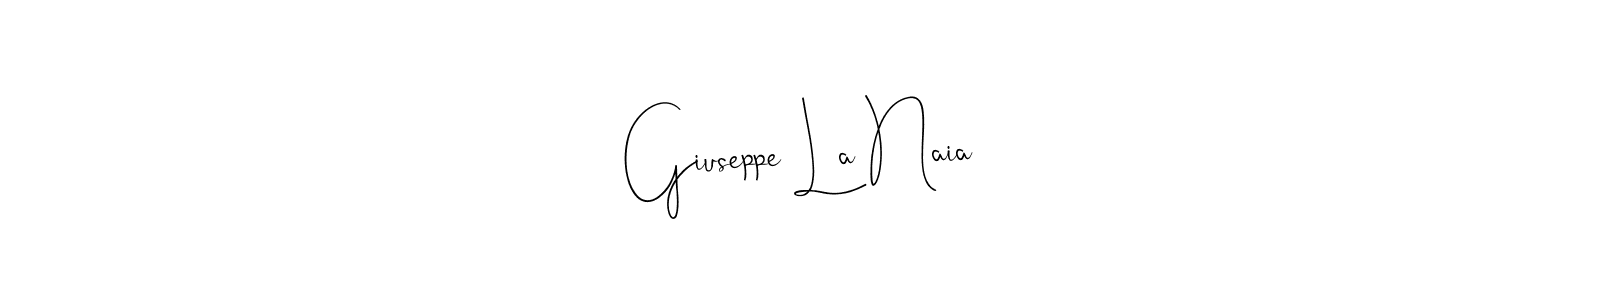 Giuseppe La Naia